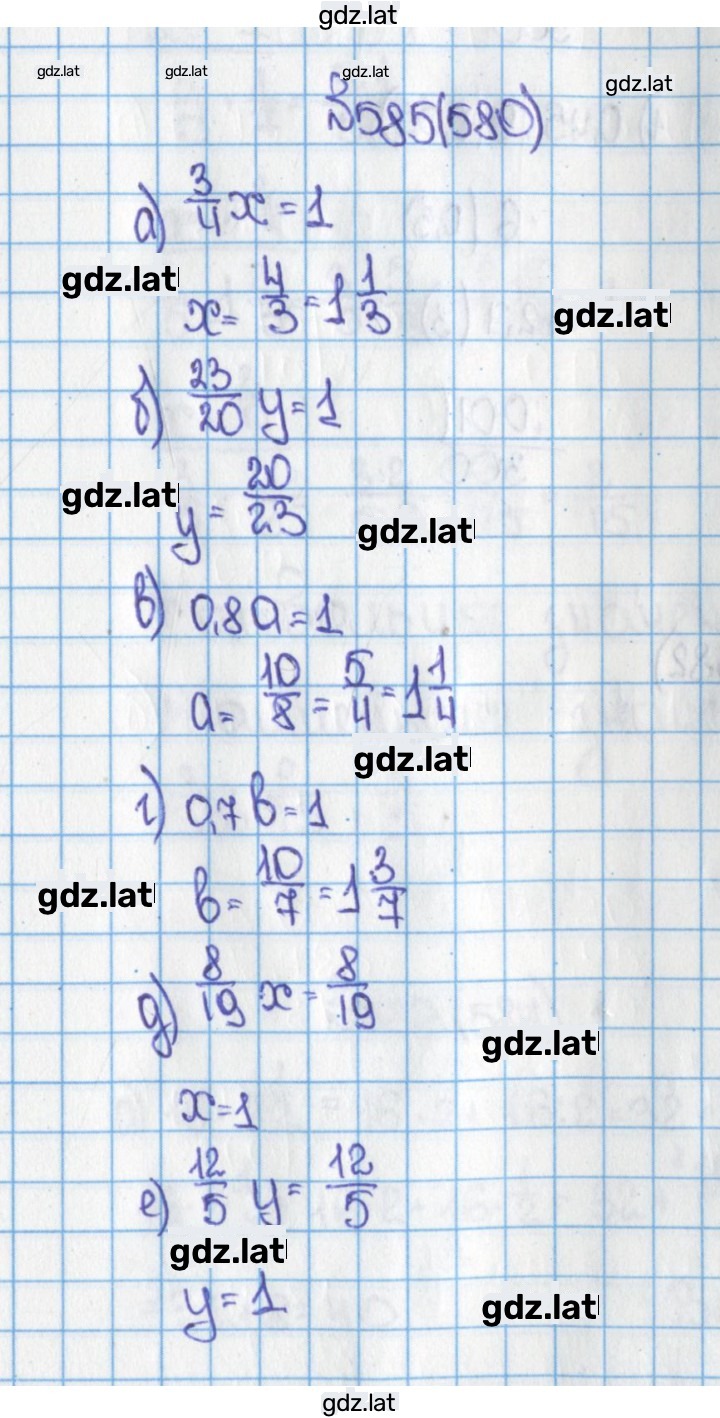 gdz.lat
gdz.lat gdz.lat gdz.lat gdz.lat
№585(580)
а) 3/4 x = 1
gdz.lat
x = 4/3 = 1 1/3
gdz.lat
б) 23/20 y = 1
gdz.lat
y = 20/23
gdz.lat
в) 0,8 a = 1
a = 10/8 = 5/4 = 1 1/4
gdz.lat
г) 0,7 b = 1
gdz.lat
b = 10/7 = 1 3/7
д) 8/19 x = 8/19
gdz.lat
x = 1
е) 12/5 y = 12/5
gdz.lat
y = 1
gdz.lat
gdz.lat